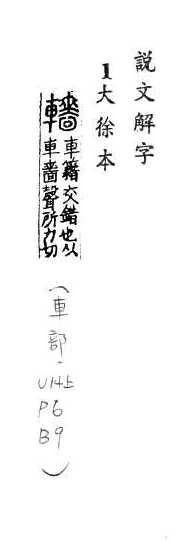 說文解字
1大徐本
轖車籍交錯也从
車嗇聲所力切
(車部,
U14上
P6
B9)